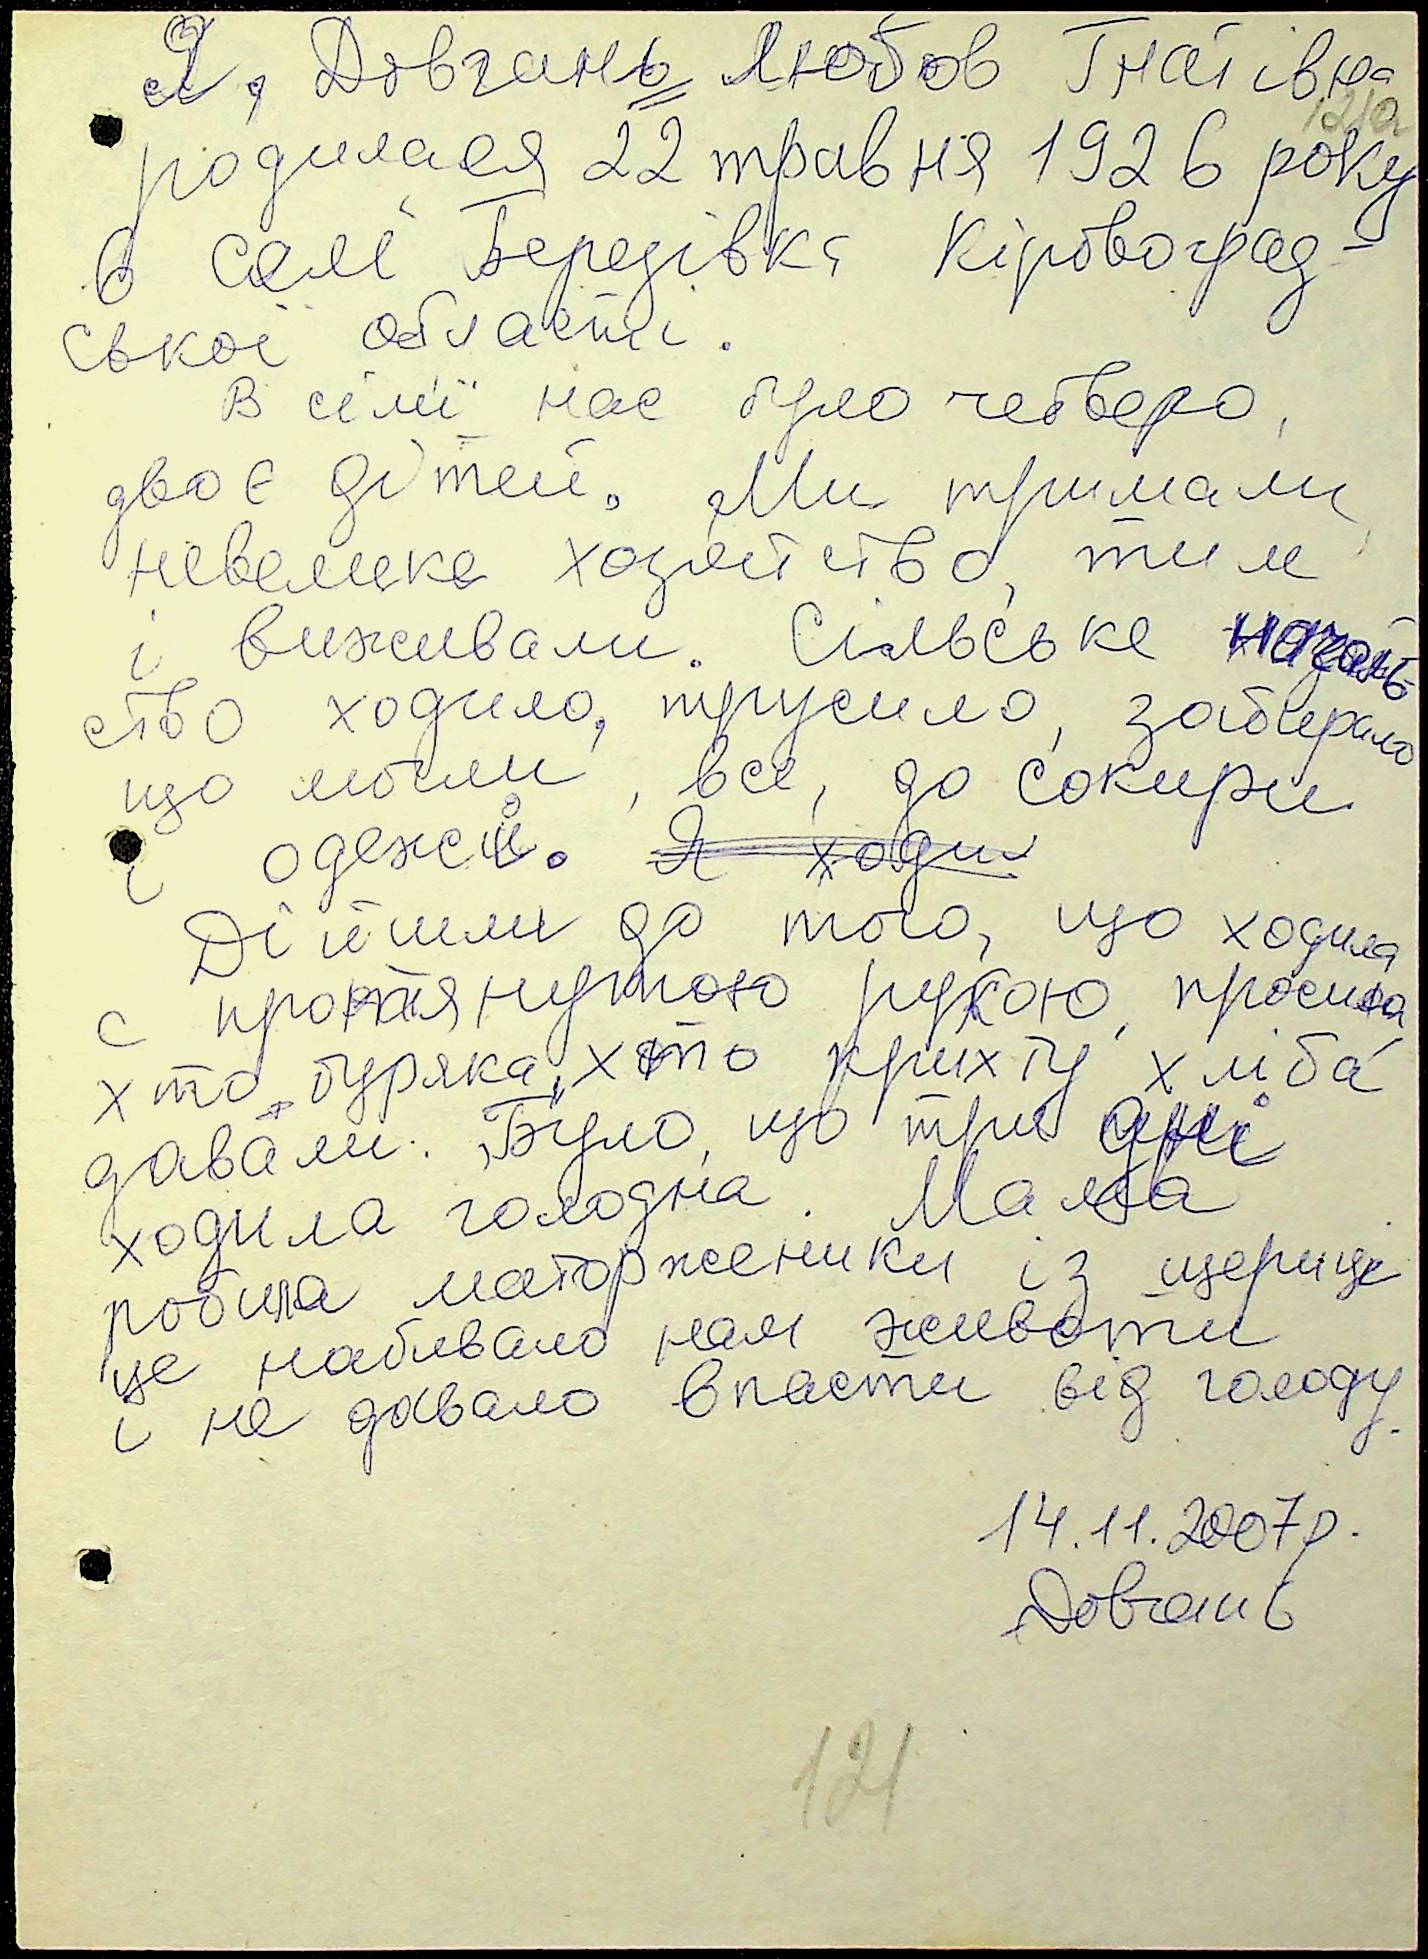 Я, Довгань Любов Гнатівна
121а
родилася 22 травня 1926 року
в селі Березівка Кіровоград-
ської області.
В сімї нас було четверо,
двоє дітей. Ми тримали
невелике хозяйство, тим
і виживали. Сільське началь-
ство ходило, трусило, забирало
що могли, все, до сокири
і одежі. Я ходи
Дійшли до того, що ходила
с протянутою рукою, просила
хто буряка, хто крихту хліба
давали. Було, що три дні
ходила голодна. Мама
робила маторженики із щериці
це набивало нам животи
і не давало впасти від голоду.
14.11.2007р.
Довгань
121